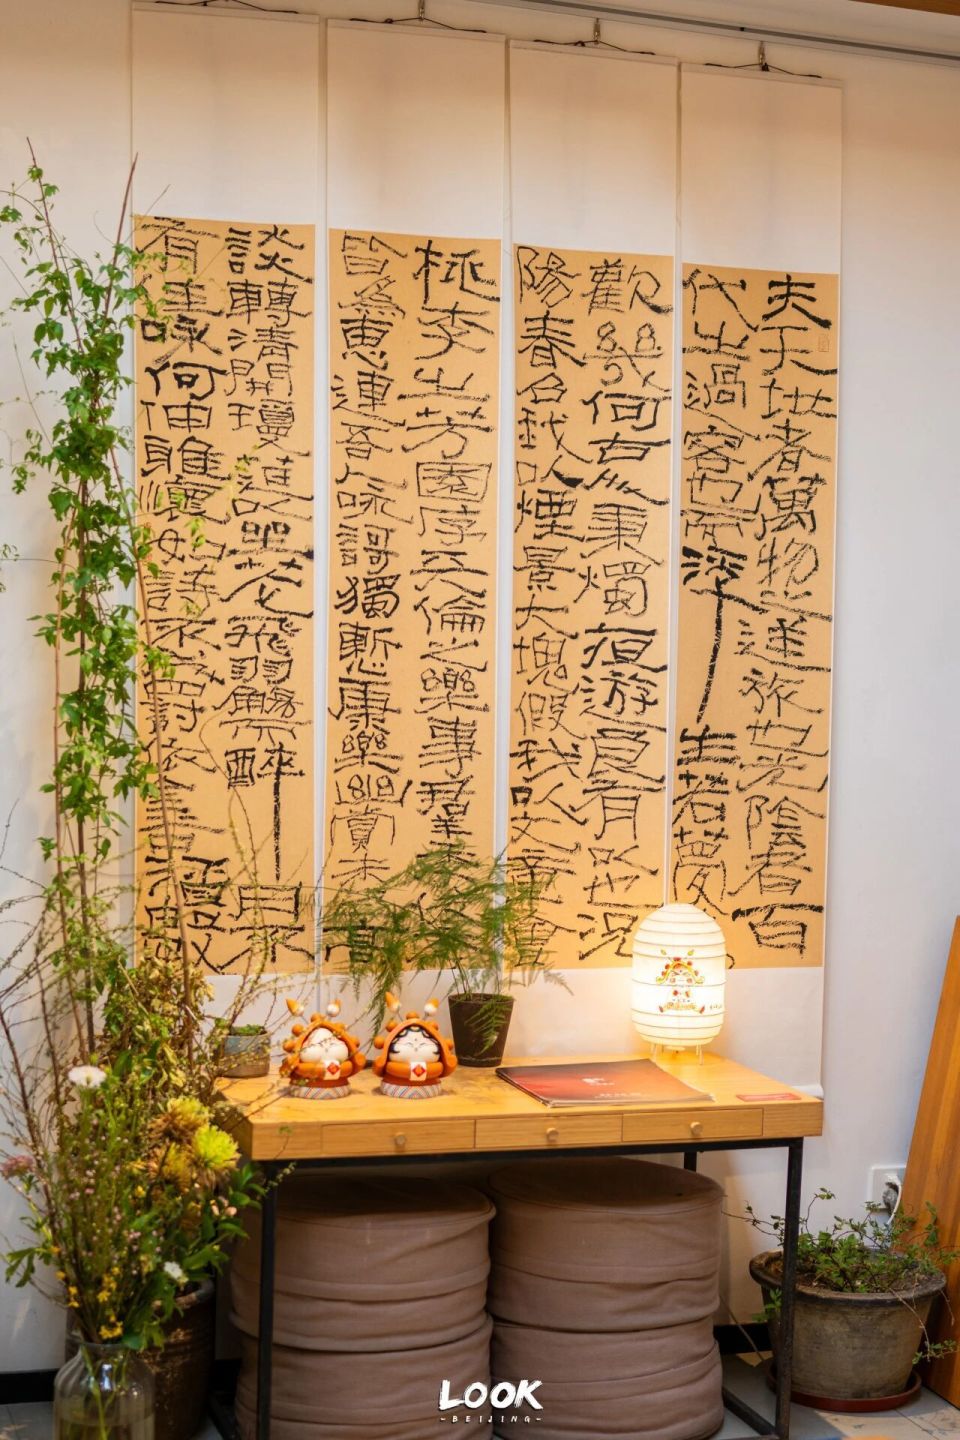 夫天地者萬物之逆旅也光陰者百
代之過客也而浮生若夢
歡幾何古人秉燭夜游良有以也況
陽春召我以煙景大塊假我以文章會
桃李之芳園序天倫之樂事群季
皆為惠連吾人詠謌獨慚康樂幽賞未高
談轉清開瓊筵以坐花飛羽觴而醉月不
有佳詠何伸雅懷如詩不成罰依金谷酒數
LOOK
BEIJING